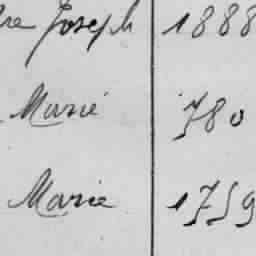 Joseph 1888
Marie 780
Marie 1759